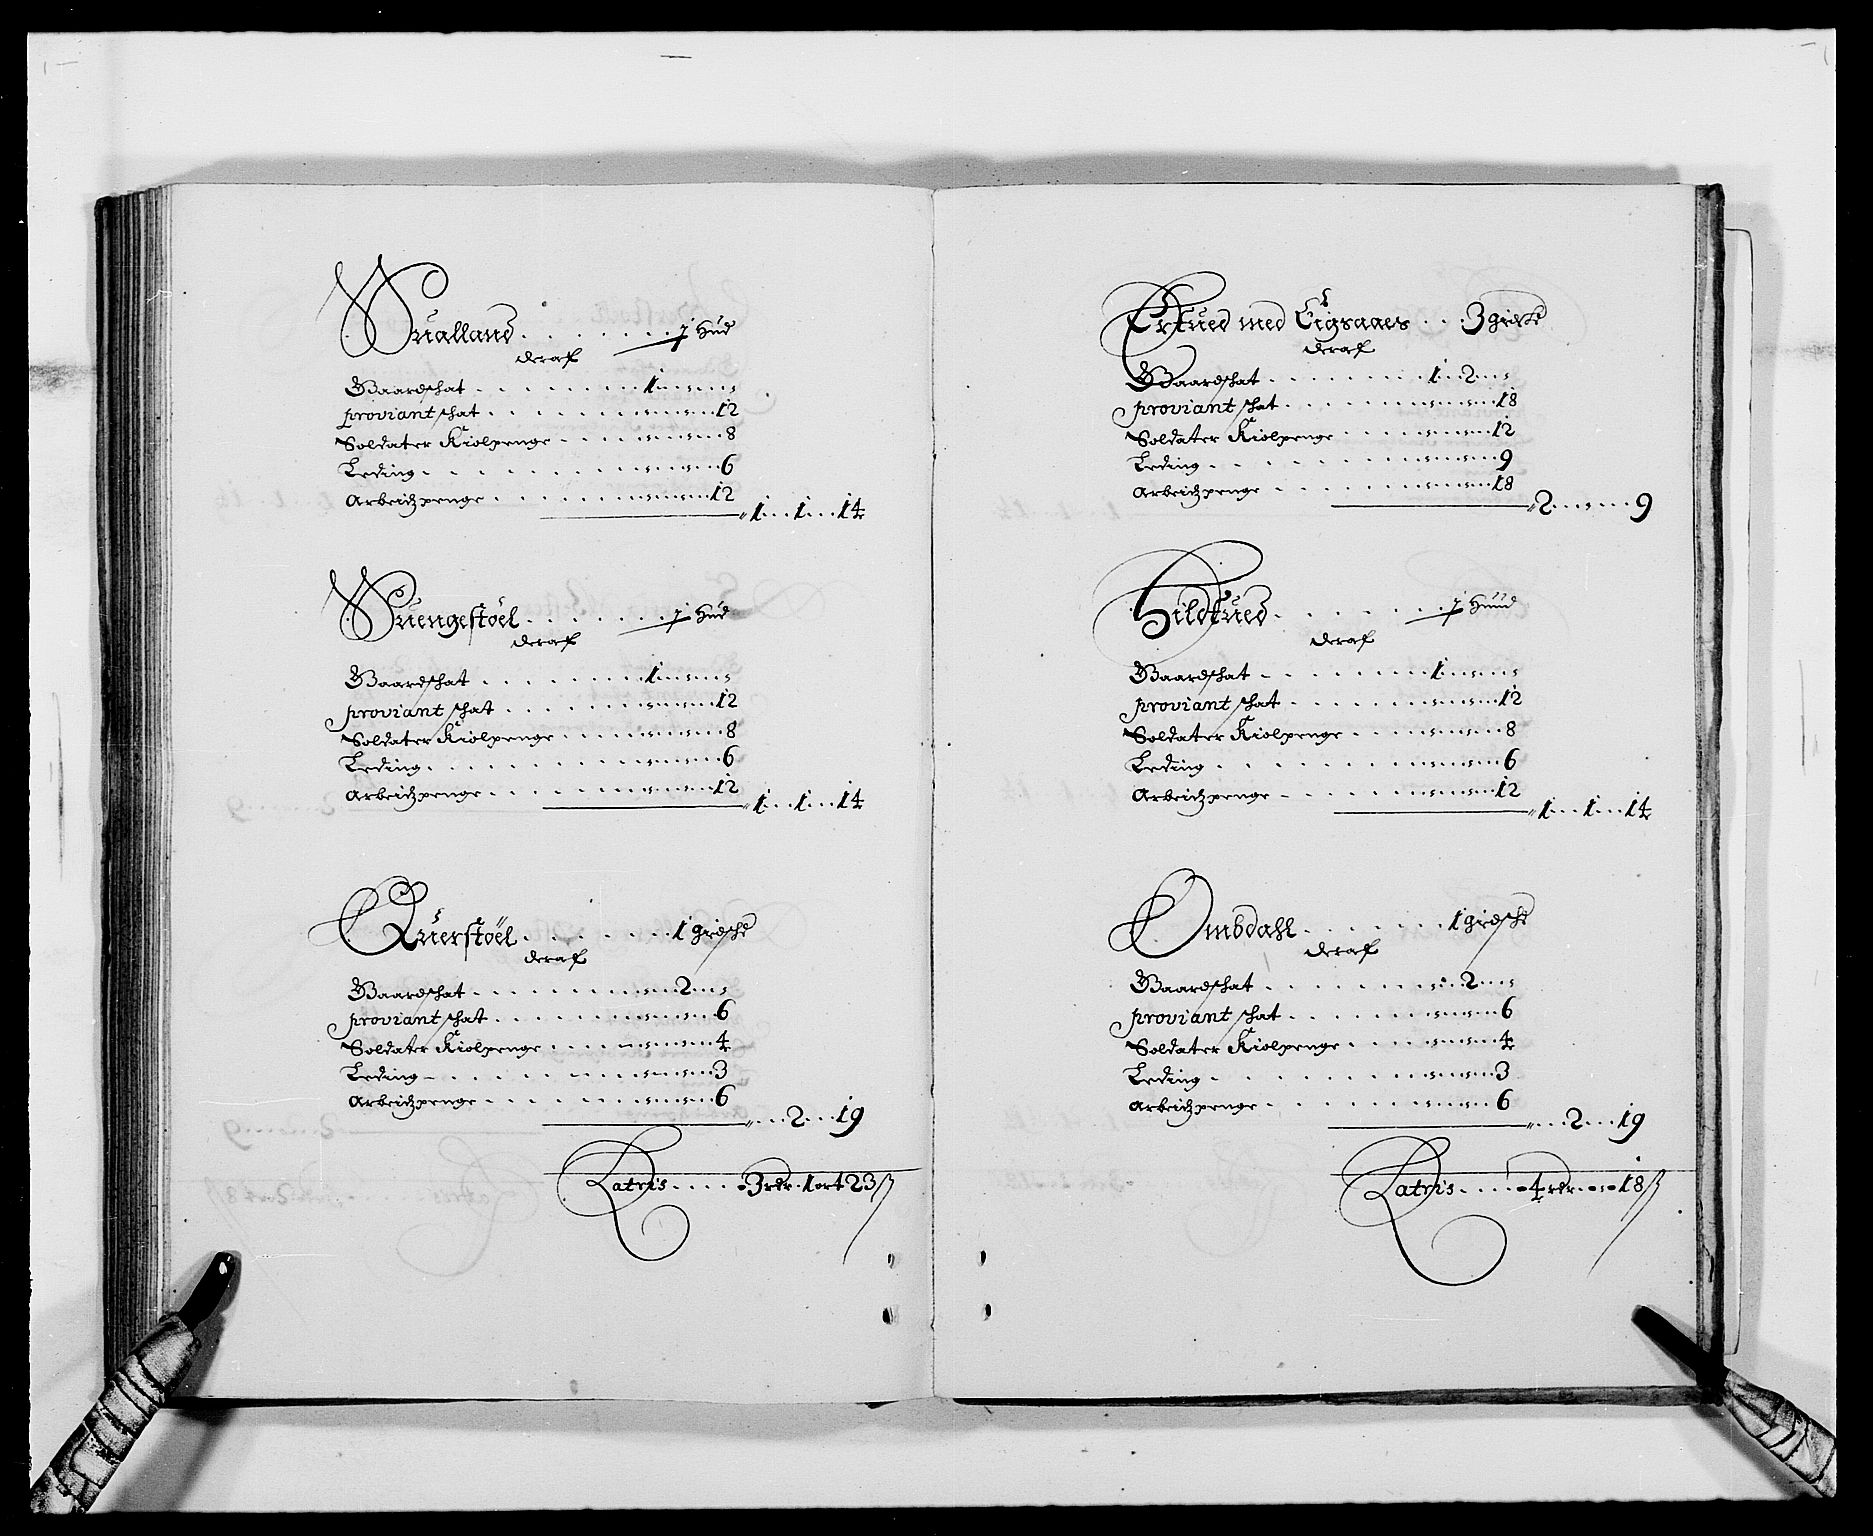 Qualland . . . . . . . 1 Hud
deraf
Gaardschat . . . . . . . . 1 „ „
proviant schat . . . . . . „ „ 12
Soldater Kiolpenge . . . . „ „ 8
Leding . . . . . . . . . „ „ 6
Arbeidzpenge . . . . . . „ „ 12
1 . . 1 . . 14
Quengestöel . . . . . . . 1 Hud
deraf
Gaardschat . . . . . . . 1 „ „
proviant schat . . . . . . „ „ 12
Soldater Kiolpenge . . . . „ „ 8
Leding . . . . . . . . . „ „ 6
Arbeidzpenge . . . . . . „ „ 12
1 . . 1 . . 14
Querstöel . . . . . . . 1 girdsche
deraf
Gaardschat . . . . . . . „ 2 „
proviant schat . . . . . . „ „ 6
Soldater Kiolpenge . . . . „ „ 4
Leding . . . . . . . . . „ „ 3
Arbeidzpenge . . . . . . „ „ 6
„ . . 2 . . 19
Latris . . . . 3 rdr. 1 ort 23 ß
med . . 3
deraf
Gaardschat . . . . . . . 1 . . 2 „
proviant schat . . . . . . „ „ 18
Soldater Kiolpenge . . . . „ „ 12
Leding . . . . . . . . . „ „ 9
Arbeidzpenge . . . . . . „ „ 18
2 . . „ . . 9
Hildtued . . . . . . . 1 Huud
deraf
Gaardschat . . . . . . . 1 „ „
proviant schat . . . . . . „ „ 12
Soldater Kiolpenge . . . . „ „ 8
Leding . . . . . . . . . „ „ 6
Arbeidzpenge . . . . . . „ „ 12
1 . . 1 . . 14
Ombdahl . . . . . . . 1 girdsche
deraf
Gaardschat . . . . . . . „ 2 „
proviant schat . . . . . . „ „ 6
Soldater Kiolpenge . . . . „ „ 4
Leding . . . . . . . . . „ „ 3
Arbeidzpenge . . . . . . „ „ 6
„ . . 2 . . 19
Latris . . . . 4 rdr. „ 18 ß